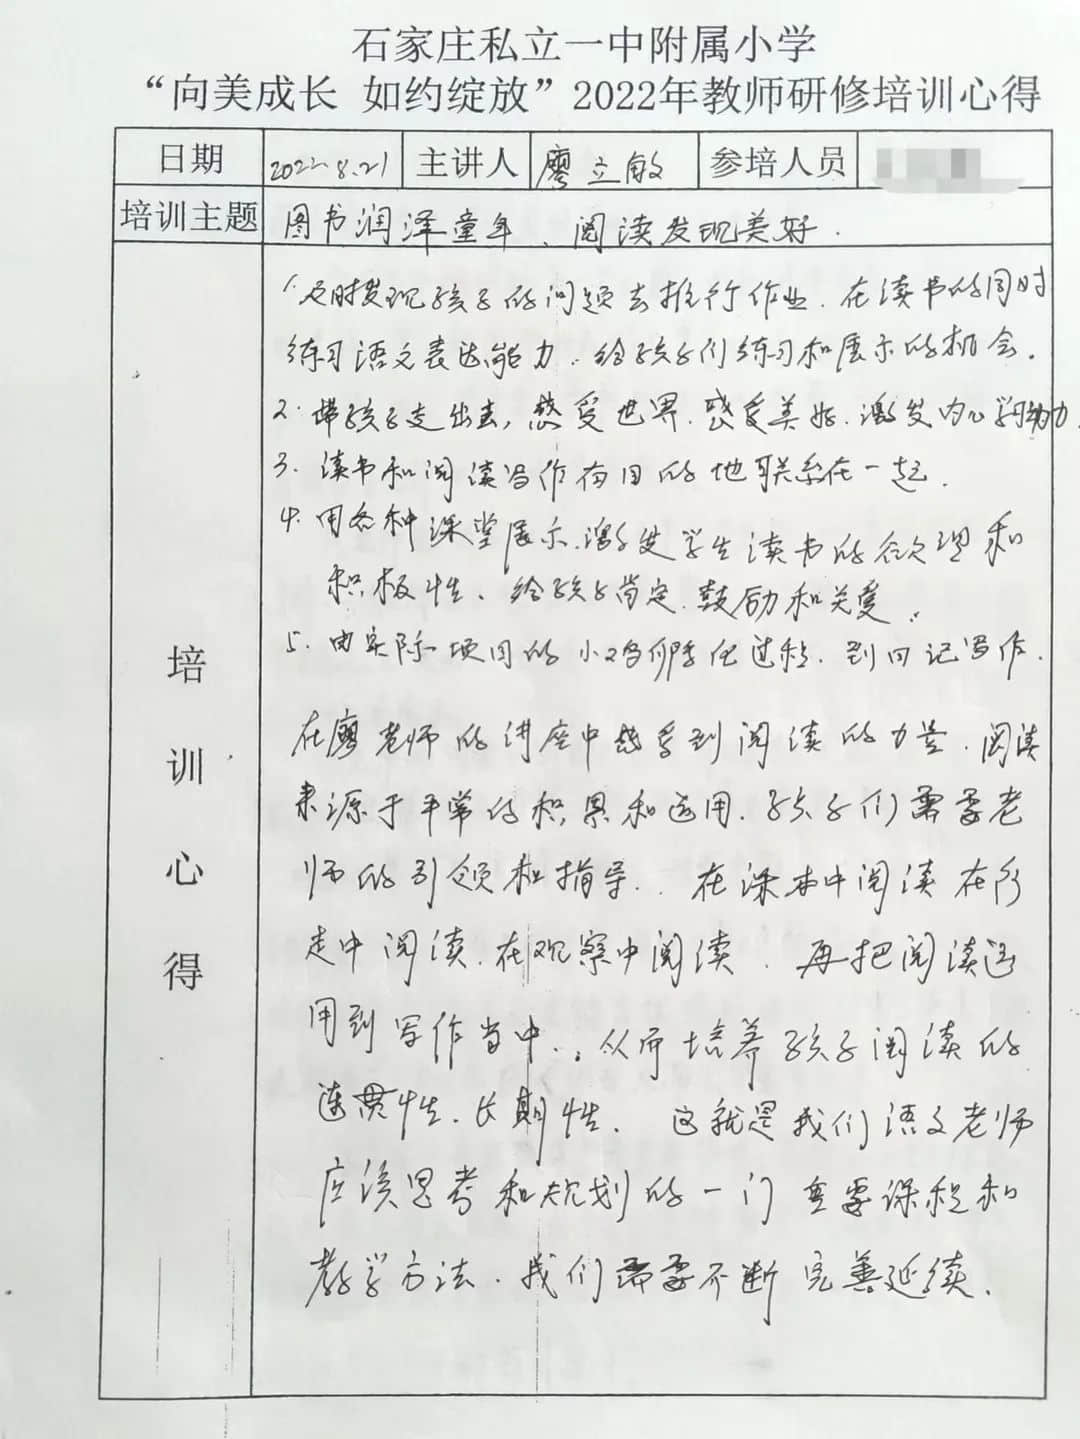 石家庄私立一中附属小学
“向美成长 如约绽放”2022年教师研修培训心得
日期 2022.8.21 主讲人 廖立敏 参培人员
培训主题 图书润泽童年、阅读发现美好.
培训心得
1.及时发现孩子的问题去推行作业.在读书的同时
练习语文表达能力.给孩子们练习和展示的机会.
2.带孩子走出去,感受世界.感受美好.激发内心动力.
3.读书和阅读写作有目的地联系在一起.
4.用各种课堂展示.激发学生读书的欲望和
积极性、给孩子肯定.鼓励和关爱.
5.由实际项目的小鸡孵化过程.到日记写作.
在廖老师的讲座中感受到阅读的力量.阅读
来源于平常的积累和运用.孩子们需要老
师的引领和指导.在课本中阅读在行
走中阅读.在观察中阅读.再把阅读运
用到写作当中.,从而培养孩子阅读的
连贯性.长期性.这就是我们语文老师
应该思考和规划的一门重要课程和
教学方法.我们需要不断完善延续.